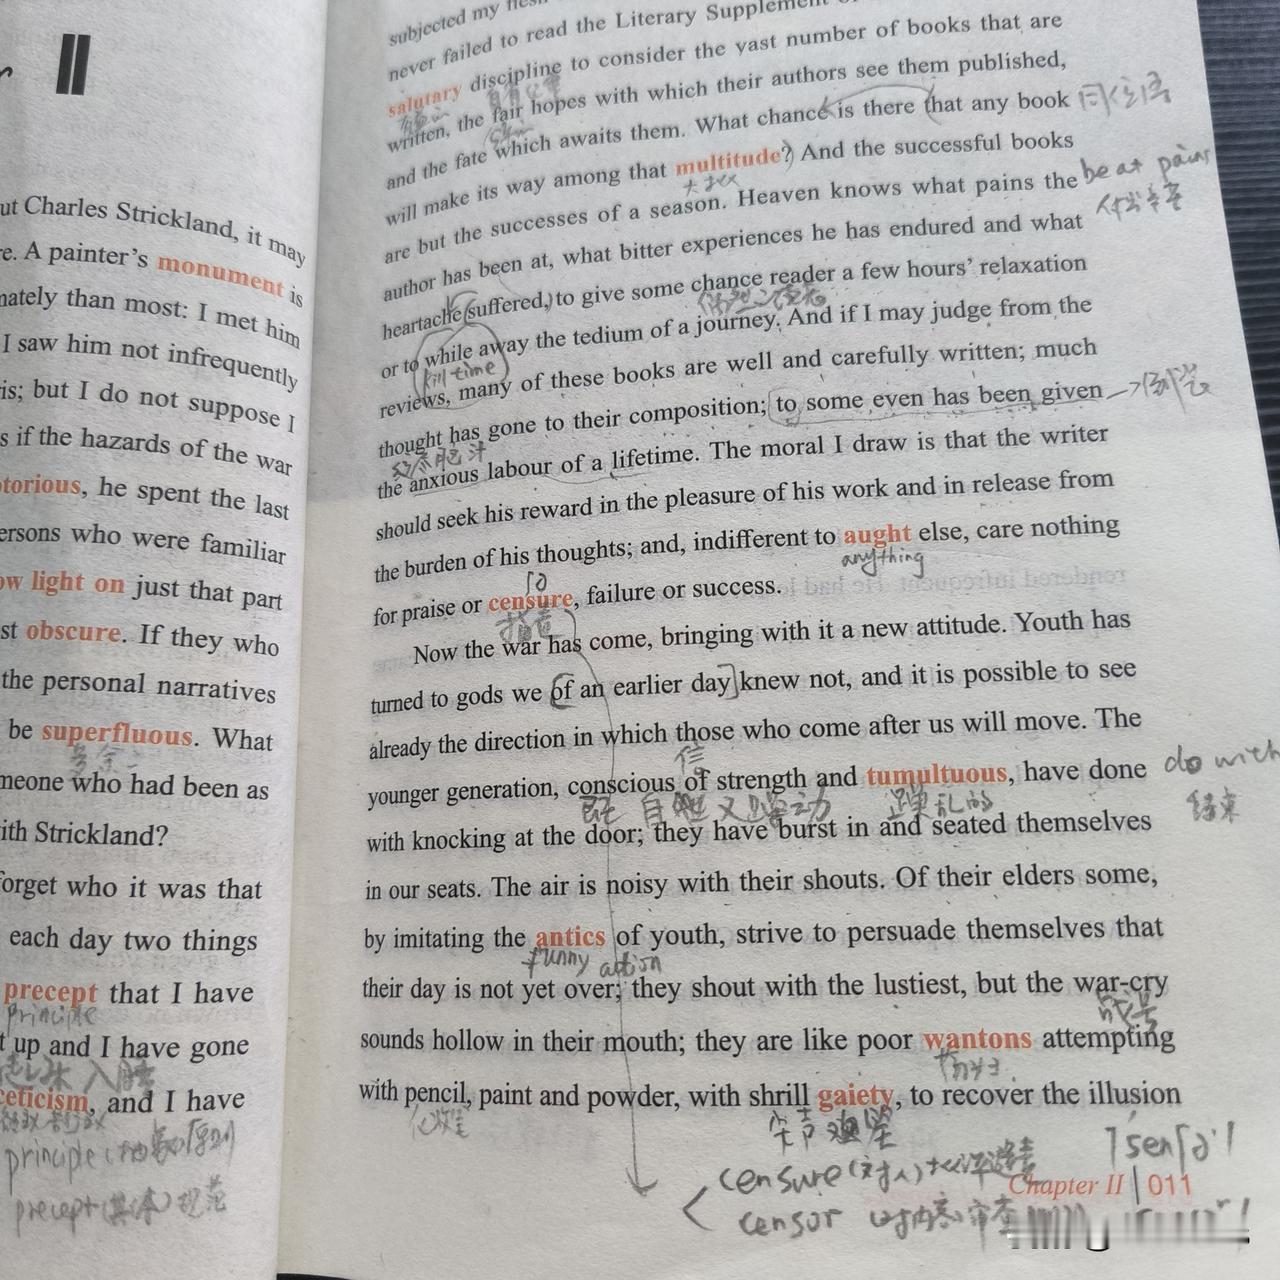 II
ut Charles Strickland, it may
re. A painter's monument is
nately than most: I met him
I saw him not infrequently
is; but I do not suppose I
s if the hazards of the war
torious, he spent the last
ersons who were familiar
ow light on just that part
st obscure. If they who
the personal narratives
be superfluous. What
多余
meone who had been as
ith Strickland?
forget who it was that
each day two things
precept that I have
principle
t up and I have gone
入睡
ceticism, and I have
principle (抽象) 原则
precept (具体) 规范
subjected my flesh
never failed to read the Literary Supplement of
salutary discipline to consider the vast number of books that are
written, the fair hopes with which their authors see them published,
and the fate which awaits them. What chance is there that any book 同位语
will make its way among that multitude? And the successful books
大众
are but the successes of a season. Heaven knows what pains the be at pains
author has been at, what bitter experiences he has endured and what
heartache suffered, to give some chance reader a few hours' relaxation
or to while away the tedium of a journey. And if I may judge from the
kill time
reviews, many of these books are well and carefully written; much
thought has gone to their composition; to some even has been given → 倒装
the anxious labour of a lifetime. The moral I draw is that the writer
should seek his reward in the pleasure of his work and in release from
the burden of his thoughts; and, indifferent to aught else, care nothing
anything
for praise or censure, failure or success.
指责
Now the war has come, bringing with it a new attitude. Youth has
turned to gods we of an earlier day knew not, and it is possible to see
already the direction in which those who come after us will move. The
younger generation, conscious of strength and tumultuous, have done do with
躁乱的 结束
with knocking at the door; they have burst in and seated themselves
in our seats. The air is noisy with their shouts. Of their elders some,
by imitating the antics of youth, strive to persuade themselves that
funny action
their day is not yet over; they shout with the lustiest, but the war-cry
战号
sounds hollow in their mouth; they are like poor wantons attempting
荡妇
with pencil, paint and powder, with shrill gaiety, to recover the illusion
化妆
censure (对人)
censor 对内容审查
Chapter II | 011